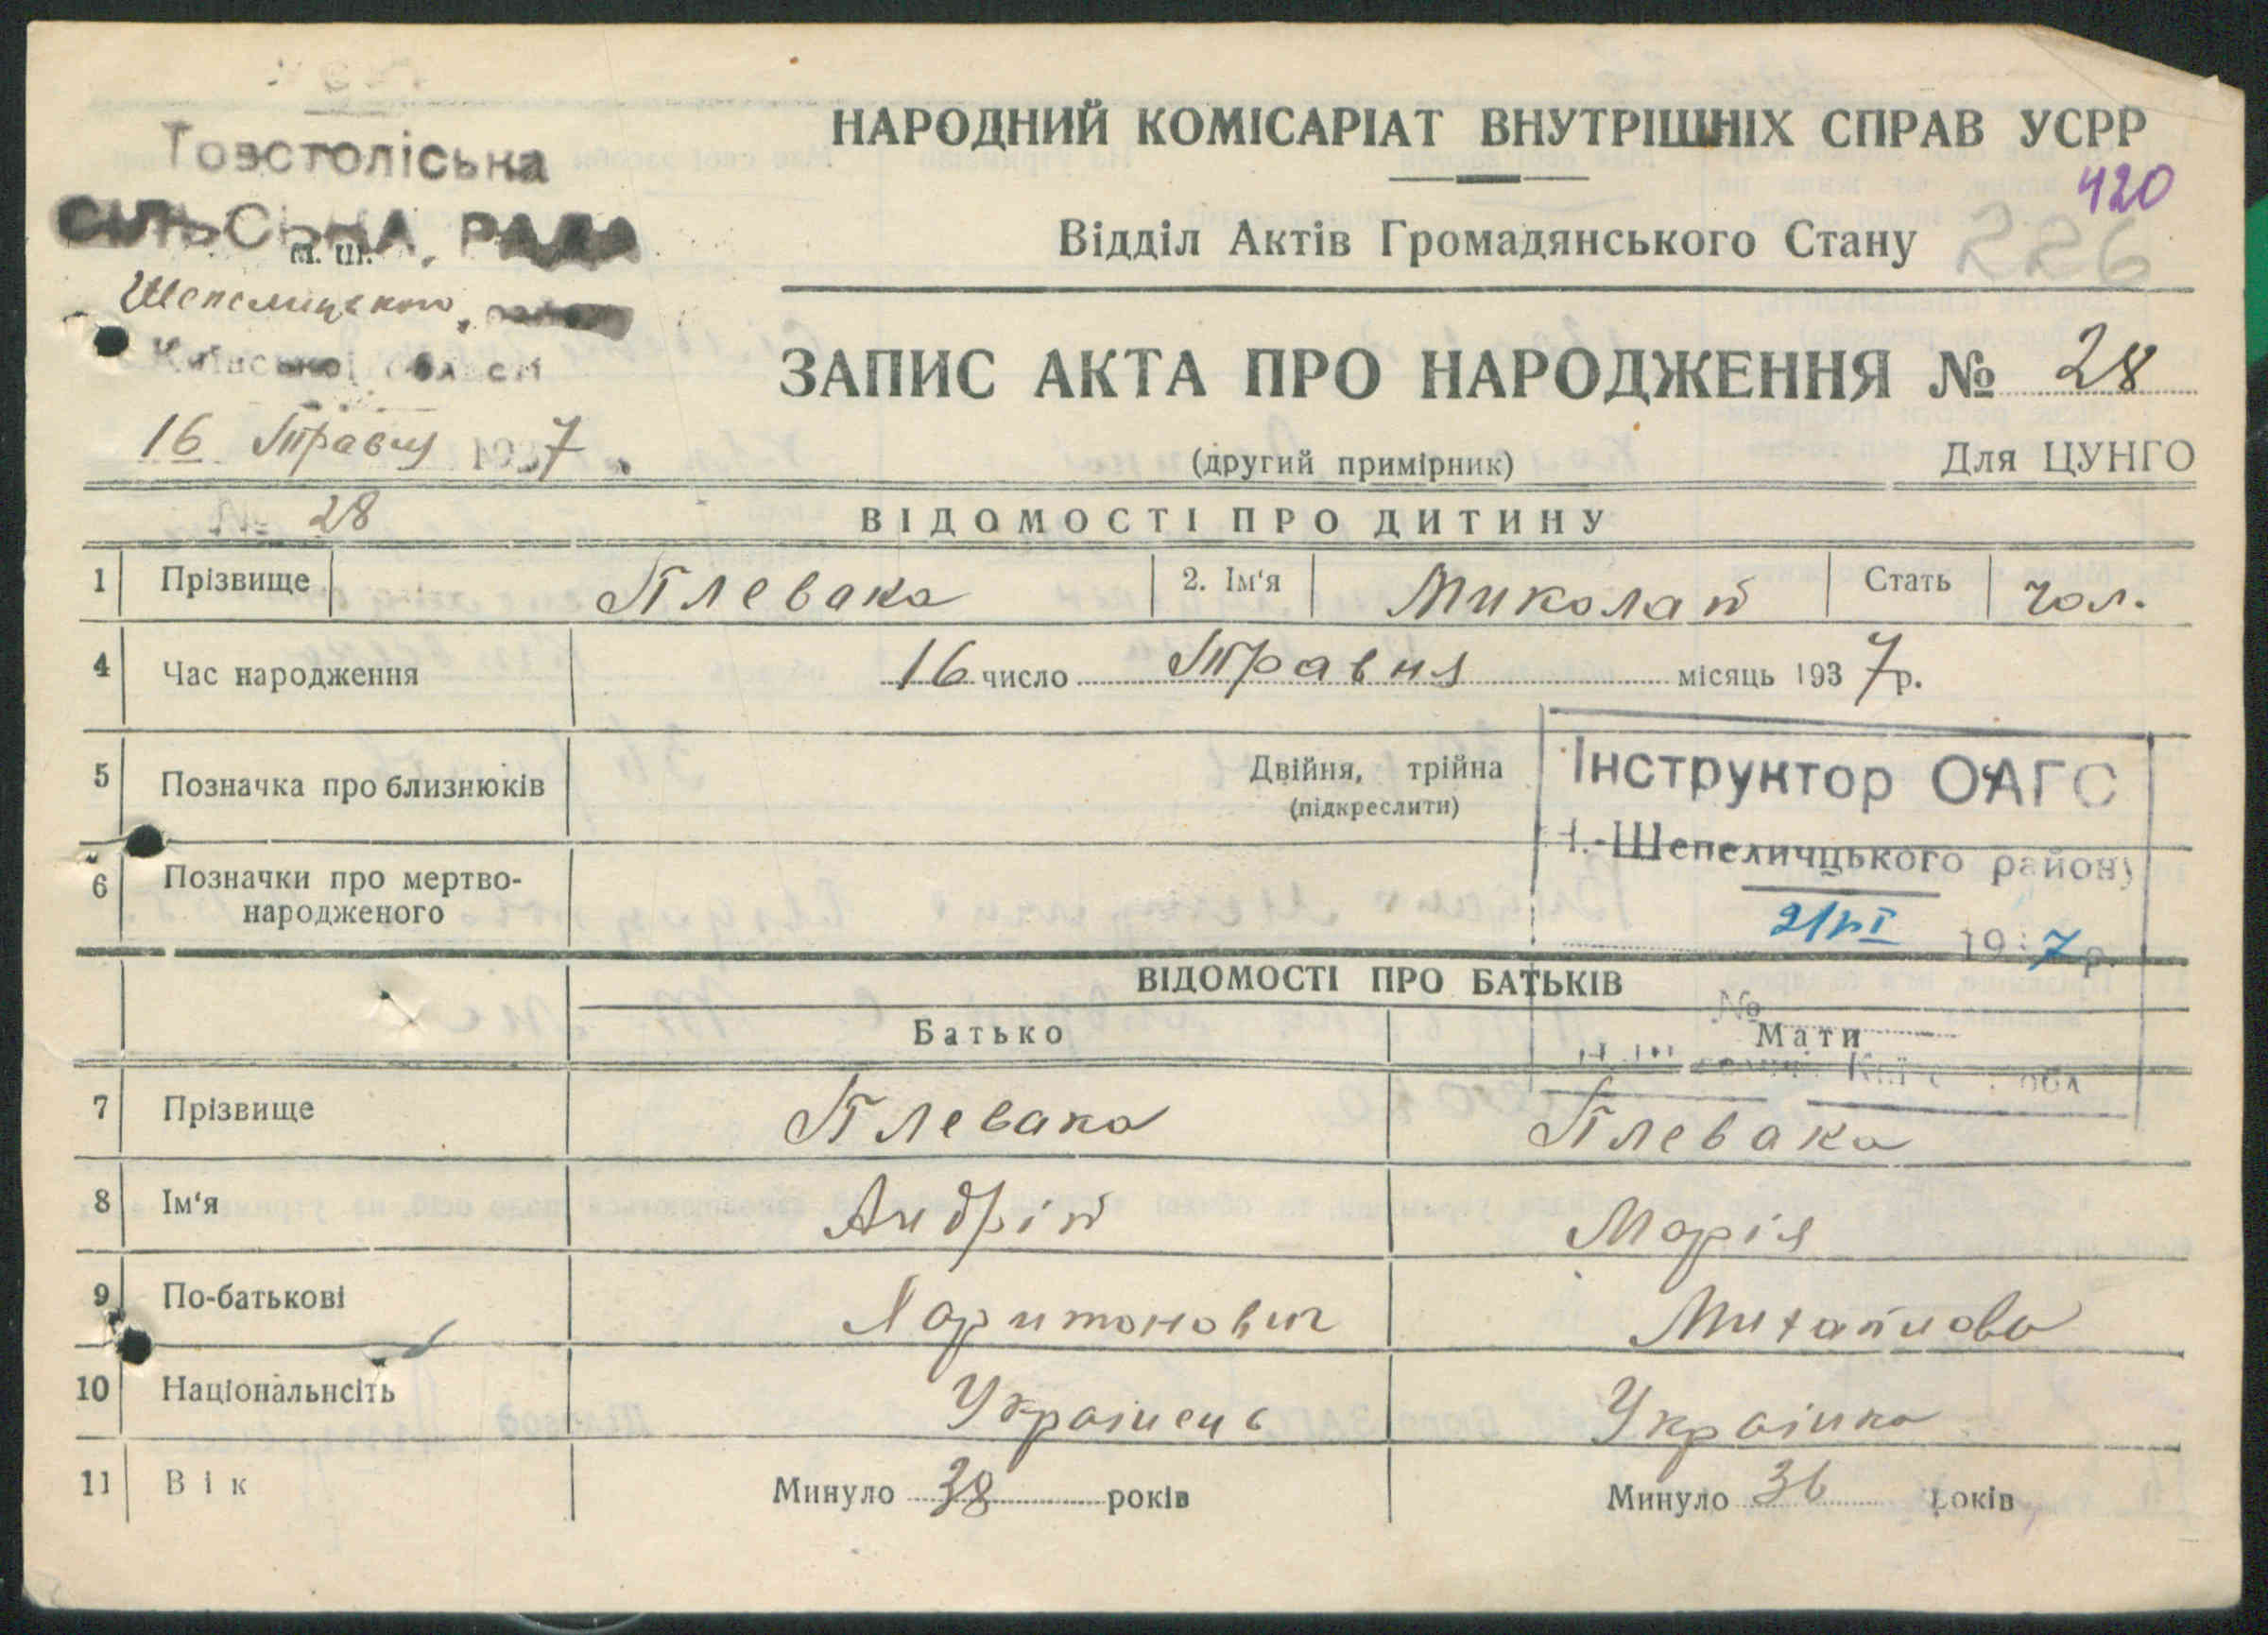 Товстоліська
СІЛЬСЬКА РАДА
Шепелицького
Київської області
16 Травня 1937
№ 28
НАРОДНИЙ КОМІСАРІАТ ВНУТРІШНІХ СПРАВ УСРР
420
226
Відділ Актів Громадянського Стану
ЗАПИС АКТА ПРО НАРОДЖЕННЯ № 28
(другий примірник) Для ЦУНГО
ВІДОМОСТІ ПРО ДИТИНУ
1 Прізвище Плевака 2. Ім'я Миколай Стать чол.
4 Час народження 16 число Травня місяць 1937 р.
5 Позначка про близнюків Двійня, трійна
(підкреслити)
Інструктор ОАГС
Н.-Шепеличцького району
21/VI 1937 р.
№
6 Позначки про мертво-
народженого
ВІДОМОСТІ ПРО БАТЬКІВ
Батько Мати
7 Прізвище Плевака Плевака
8 Ім'я Андрій Марія
9 По-батькові Харитонович Михайлова
10 Національнсіть Українець Українка
11 Вік Минуло 38 років Минуло 36 років